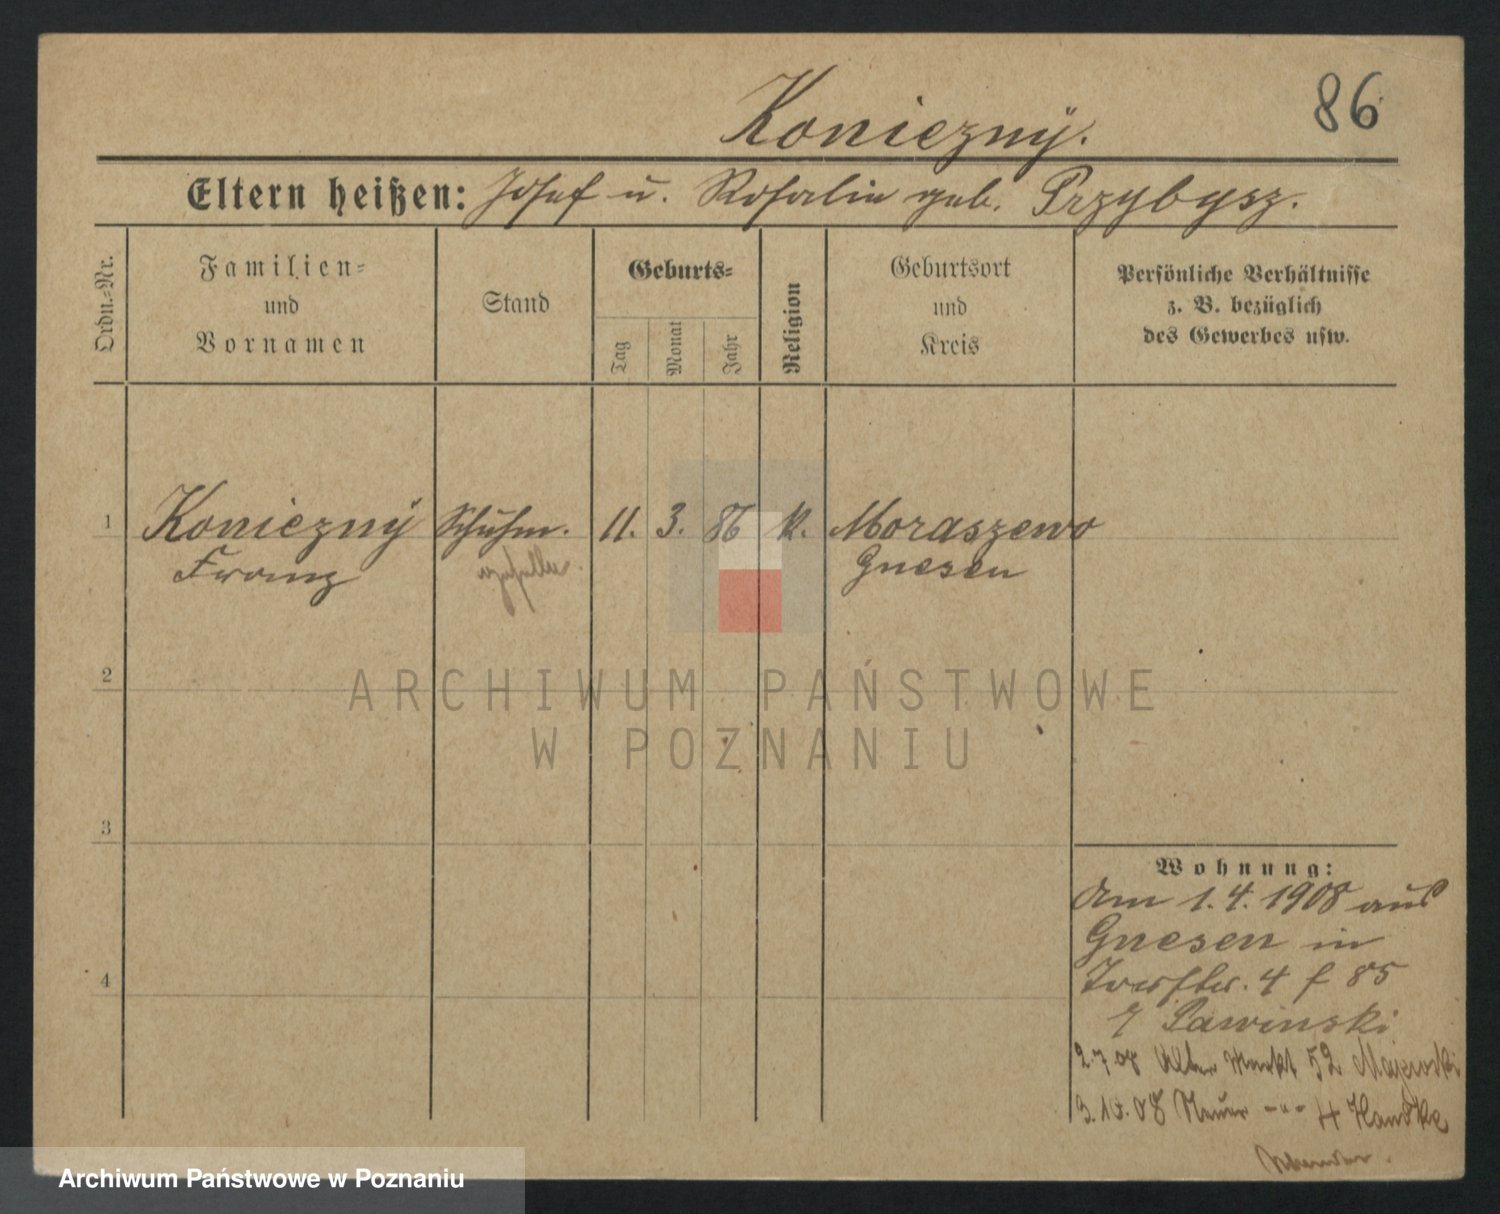 86
Koniezny.
Eltern heißen: Josef u. Rosalie geb. Przybysz.
Ordn.-Nr.
Familien-
und
Vornamen
Stand
Geburts-
Tag
Monat
Jahr
Religion
Geburtsort
und
Kreis
Persönliche Verhältnisse
z. B. bezüglich
des Gewerbes usw.
1
Koniezny
Franz
Schuhm.
11. 3. 86
k.
Moraszewo
Gnesen
2
3
4
ARCHIWUM PAŃSTWOWE
W POZNANIU
Wohnung:
Am 1.4.1908 aus
Gnesen in
4 f 85
Pawinski
2.7.08 Alter Markt 52 Majewski
3.10.08 Neuer -"- 4 Handke
Archiwum Państwowe w Poznaniu